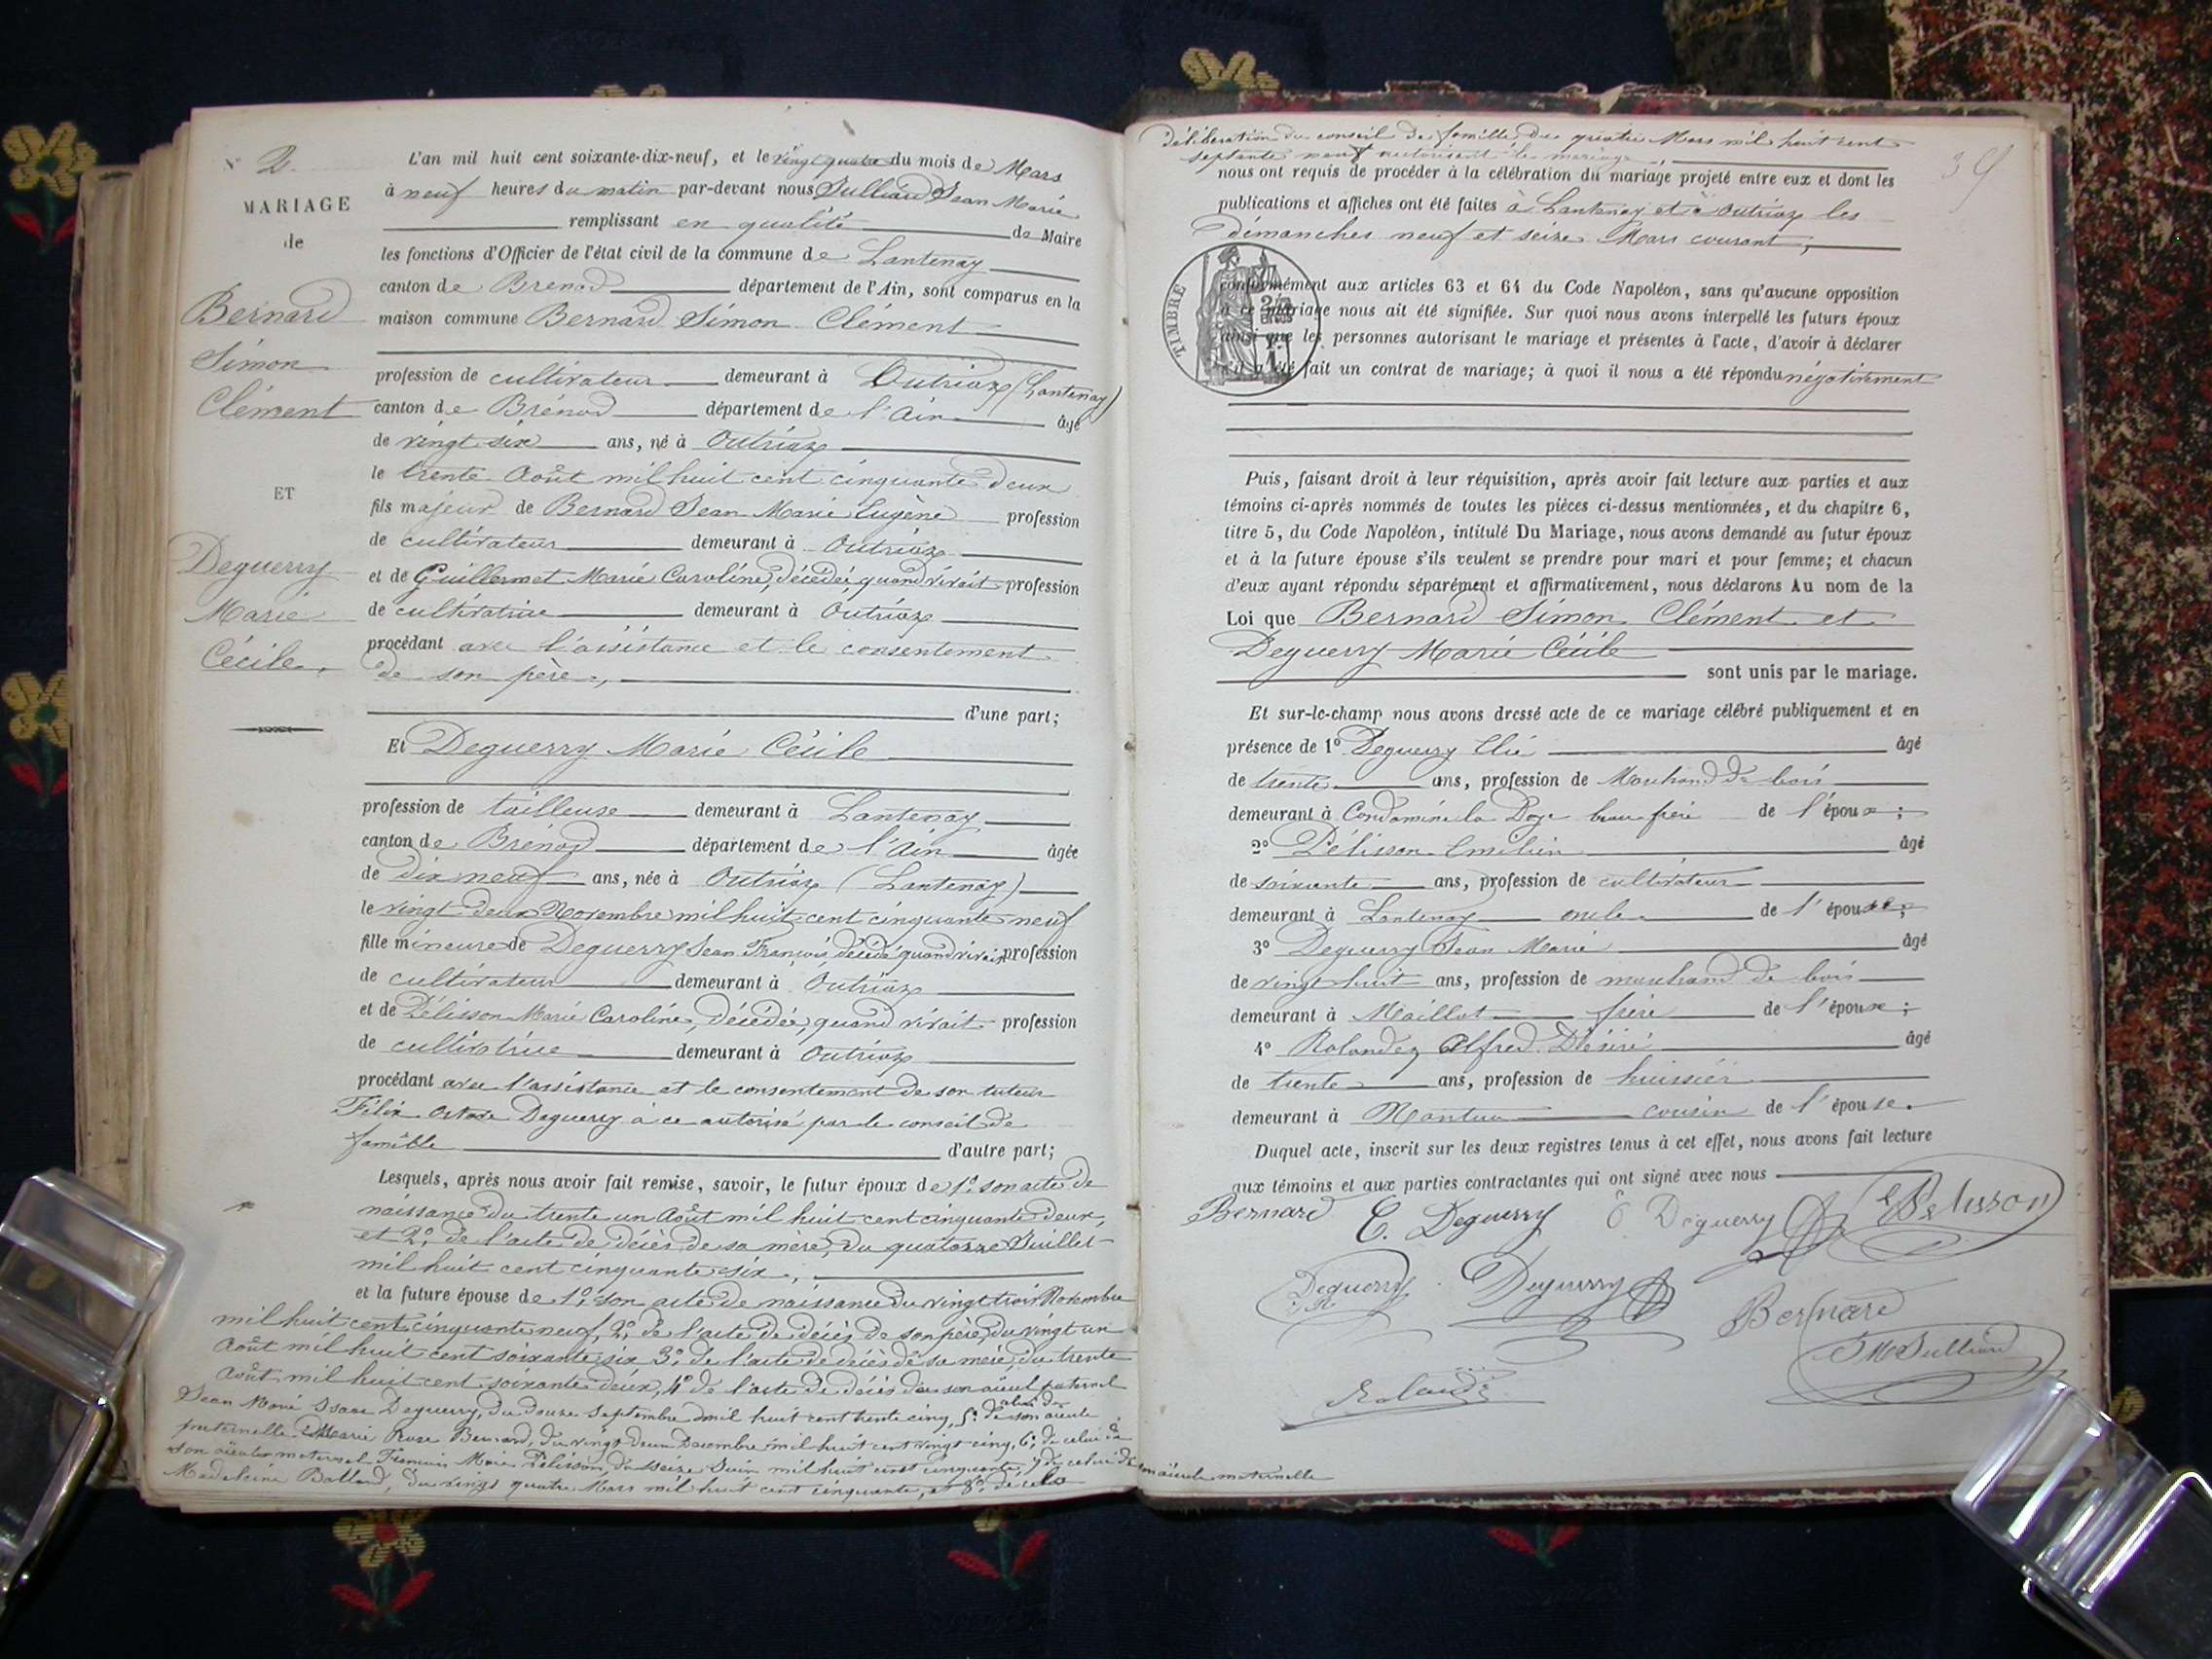 N° 2.
MARIAGE
de
Bernard
Simon
Clément
ET
Deguerry
Marie
Cécile.
L'an mil huit cent soixante-dix-neuf, et le vingt quatre du mois de Mars
à neuf heures du matin par-devant nous Julliard Jean Marie
remplissant en qualité de Maire
les fonctions d'Officier de l'état civil de la commune de Lantenay
canton de Brénod département de l'Ain, sont comparus en la
maison commune Bernard Simon Clément
profession de cultivateur demeurant à Outriaz (Lantenay)
canton de Brénod département de l'Ain âgé
de vingt six ans, né à Outriaz
le trente Août mil huit cent cinquante deux
fils majeur de Bernard Jean Marie Eugène profession
de cultivateur demeurant à Outriaz
et de Guillermet Marie Caroline, décédée, quand vivait profession
de cultivatrice demeurant à Outriaz
procédant avec l'assistance et le consentement
de son père,
d'une part;
Et Deguerry Marie Cécile
profession de tailleuse demeurant à Lantenay
canton de Brénod département de l'Ain âgée
de dix neuf ans, née à Outriaz (Lantenay)
le vingt deux Novembre mil huit cent cinquante neuf
fille mineure de Deguerry Jean François, décédé quand vivait profession
de cultivateur demeurant à Outriaz
et de Pélisson Marie Caroline, décédée, quand vivait profession
de cultivatrice demeurant à Outriaz
procédant avec l'assistance et le consentement de son tuteur
Félix Octave Deguerry à ce autorisé par le conseil de
famille d'autre part;
Lesquels, après nous avoir fait remise, savoir, le futur époux de 1° son acte de
naissance du trente un Août mil huit cent cinquante deux,
et 2° de l'acte de décès de sa mère, du quatorze Juillet
mil huit cent cinquante six,
et la future épouse de 1° son acte de naissance du vingt trois Novembre
mil huit cent cinquante neuf, 2° de l'acte de décès de son père, du vingt un
Août mil huit cent soixante six 3° de l'acte de décès de sa mère, du trente
Août mil huit cent soixante deux, 4° de l'acte de décès de son aïeul paternel
Jean Marie Isaac Deguerry, du douze Septembre mil huit cent trente cinq, 5° celui de son aïeule
paternelle Marie Rose Bernard, du vingt deux Décembre mil huit cent vingt cinq, 6° de celui de
son aïeul maternel François Marie Pélisson, du seize Juin mil huit cent cinquante, 7° de celui de son aïeule maternelle
Madeleine Balland, du vingt quatre Mars mil huit cent cinquante, et 8° de la
39
délibération du conseil de famille du quatre Mars mil huit cent
septante neuf autorisant le mariage,
nous ont requis de procéder à la célébration du mariage projeté entre eux et dont les
publications et affiches ont été faites à Lantenay et à Outriaz les
dimanches neuf et seize Mars courant,
TIMBRE
conformément aux articles 63 et 64 du Code Napoléon, sans qu'aucune opposition
à ce mariage nous ait été signifiée. Sur quoi nous avons interpellé les futurs époux
ainsi que les personnes autorisant le mariage et présentes à l'acte, d'avoir à déclarer
s'il a été fait un contrat de mariage; à quoi il nous a été répondu négativement
Puis, faisant droit à leur réquisition, après avoir fait lecture aux parties et aux
témoins ci-après nommés de toutes les pièces ci-dessus mentionnées, et du chapitre 6,
titre 5, du Code Napoléon, intitulé Du Mariage, nous avons demandé au futur époux
et à la future épouse s'ils veulent se prendre pour mari et pour femme; et chacun
d'eux ayant répondu séparément et affirmativement, nous déclarons Au nom de la
Loi que Bernard Simon Clément et
Deguerry Marie Cécile
sont unis par le mariage.
Et sur-le-champ nous avons dressé acte de ce mariage célébré publiquement et en
présence de 1° Deguerry Elie âgé
de trente ans, profession de Marchand de bois
demeurant à Condamine la Doye beau frère de l'époux;
2° Pélisson Emilien âgé
de soixante ans, profession de cultivateur
demeurant à Lantenay oncle de l'épouse;
3° Deguerry Jean Marie âgé
de vingt huit ans, profession de marchand de bois
demeurant à Maillat frère de l'époux;
4° Rolandez Alfred Désiré âgé
de trente ans, profession de huissier
demeurant à Nantua cousin de l'épouse.
Duquel acte, inscrit sur les deux registres tenus à cet effet, nous avons fait lecture
aux témoins et aux parties contractantes qui ont signé avec nous
Bernard C. Deguerry E Deguerry e Pelisson
Deguerry Deguerry Bernard
J M Julliard